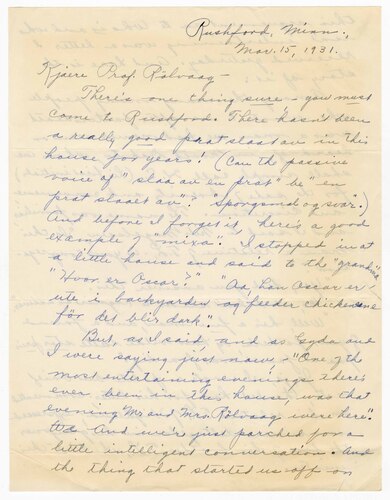 Rushford, Minn.,
Mar. 15, 1931.
Kjære Prof. Rölvaag –
There's one thing sure – you must
come to Rushford. There hasn't been
a really good prat slaat av in this
house for years! (Can the passive
voice of "slaa av en prat" be "en
prat slaaet av"? "Spörgsmal og svar".)
And before I forget it, here's a good
example of "mixa". I stopped in at
a little house and said to the "grandma"
"Hvor er Oscar?" "Aa, han Oscar er
ute i backyarden og feeder chickensane
för det blir dark".
But, as I said and as Gyda and
I were saying just now, – "One of the
most entertaining evenings there's
ever been in the house, was that
evening Mr. and Mrs. Rölvaag were here."
And we're just parched for a
little intelligent conversation. And
the thing that started us off on